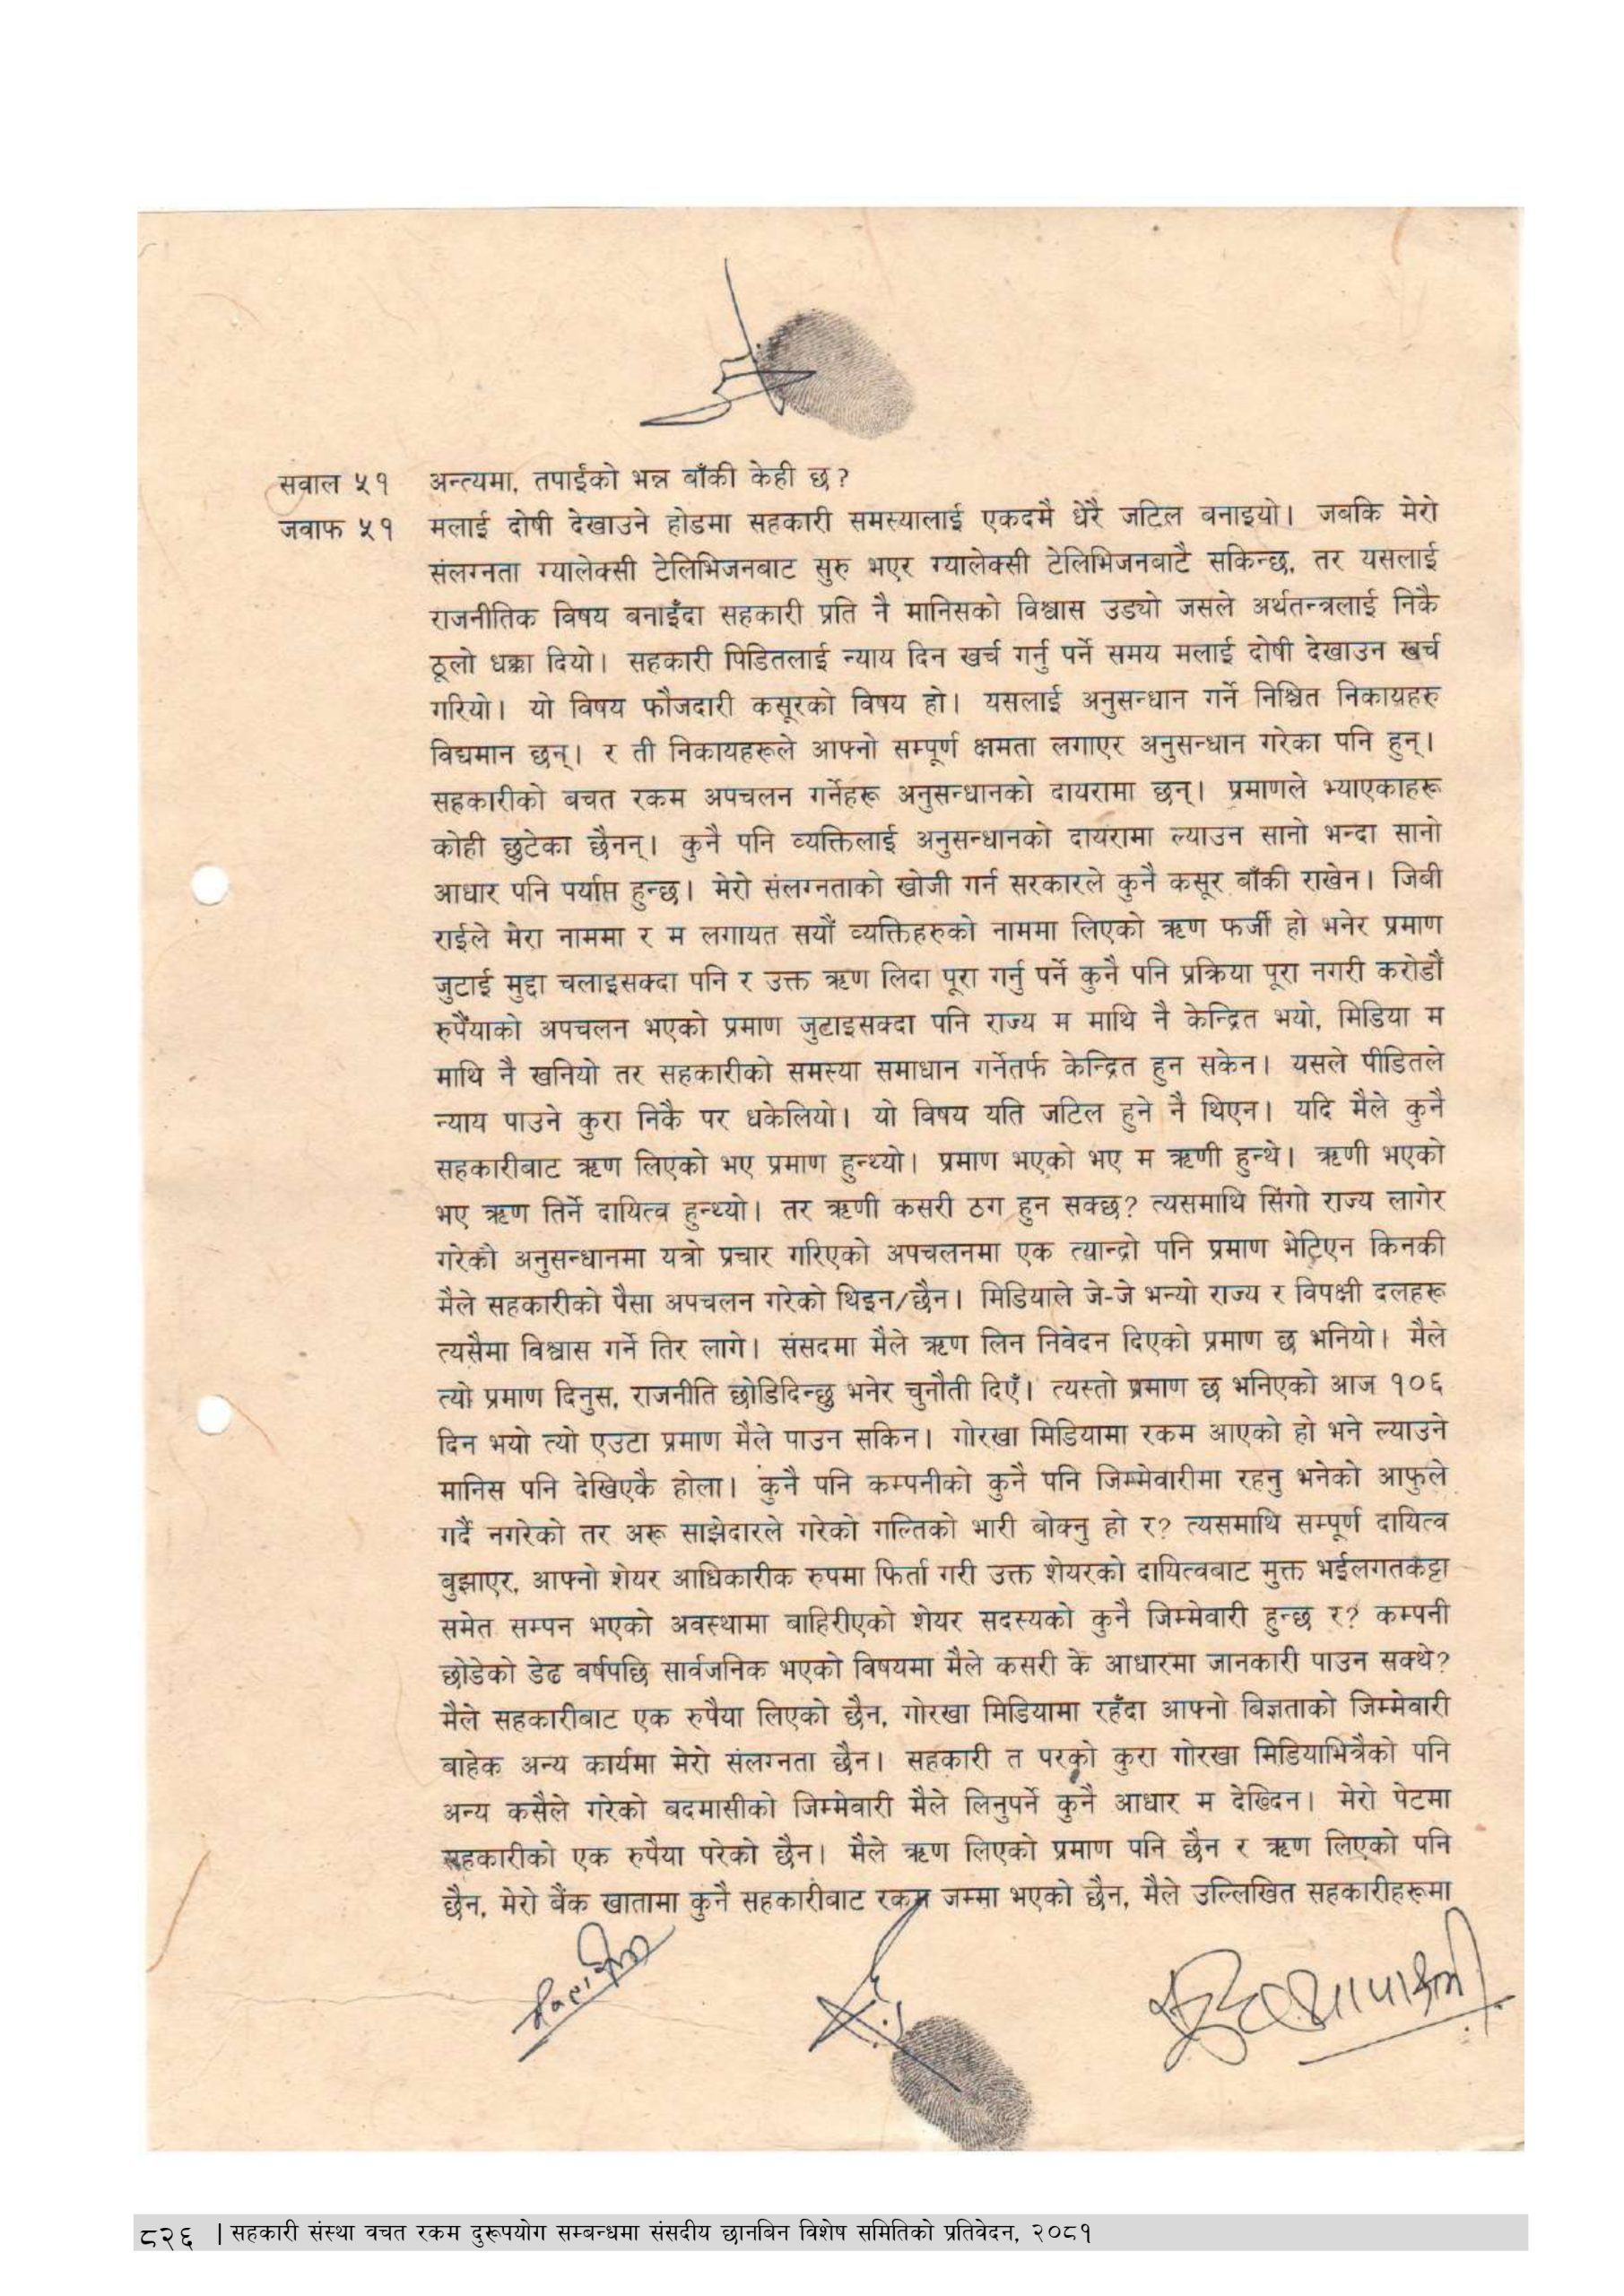 सवाल ५१ अन्त्यमा, तपाईंको भन्न बाँकी केही छ?
जवाफ ५१ मलाई दोषी देखाउने होडमा सहकारी समस्यालाई एकदमै धेरै जटिल बनाइयो। जबकि मेरो
संलग्नता ग्यालेक्सी टेलिभिजनबाट सुरु भएर ग्यालेक्सी टेलिभिजनबाटै सकिन्छ, तर यसलाई
राजनीतिक विषय बनाइँदा सहकारी प्रति नै मानिसको विश्वास उड्यो जसले अर्थतन्त्रलाई निकै
ठूलो धक्का दियो। सहकारी पिडितलाई न्याय दिन खर्च गर्नु पर्ने समय मलाई दोषी देखाउन खर्च
गरियो। यो विषय फौजदारी कसूरको विषय हो। यसलाई अनुसन्धान गर्ने निश्चित निकायहरु
विद्यमान छन्। र ती निकायहरूले आफ्नो सम्पूर्ण क्षमता लगाएर अनुसन्धान गरेका पनि हुन्।
सहकारीको बचत रकम अपचलन गर्नेहरू अनुसन्धानको दायरामा छन्। प्रमाणले भ्याएकाहरू
कोही छुटेका छैनन्। कुनै पनि व्यक्तिलाई अनुसन्धानको दायरामा ल्याउन सानो भन्दा सानो
आधार पनि पर्याप्त हुन्छ। मेरो संलग्नताको खोजी गर्न सरकारले कुनै कसूर बाँकी राखेन। जिबी
राईले मेरा नाममा र म लगायत सयौं व्यक्तिहरुको नाममा लिएको ऋण फर्जी हो भनेर प्रमाण
जुटाई मुद्दा चलाइसक्दा पनि र उक्त ऋण लिदा पूरा गर्नु पर्ने कुनै पनि प्रक्रिया पूरा नगरी करोडौं
रुपैंयाको अपचलन भएको प्रमाण जुटाइसक्दा पनि राज्य म माथि नै केन्द्रित भयो, मिडिया म
माथि नै खनियो तर सहकारीको समस्या समाधान गर्नेतर्फ केन्द्रित हुन सकेन। यसले पीडितले
न्याय पाउने कुरा निकै पर धकेलियो। यो विषय यति जटिल हुने नै थिएन। यदि मैले कुनै
सहकारीबाट ऋण लिएको भए प्रमाण हुन्थ्यो। प्रमाण भएको भए म ऋणी हुन्थे। ऋणी भएको
भए ऋण तिर्ने दायित्व हुन्थ्यो। तर ऋणी कसरी ठग हुन सक्छ? त्यसमाथि सिंगो राज्य लागेर
गरेको अनुसन्धानमा यत्रो प्रचार गरिएको अपचलनमा एक त्यान्द्रो पनि प्रमाण भेटिएन किनकी
मैले सहकारीको पैसा अपचलन गरेको थिइन/छैन। मिडियाले जे-जे भन्यो राज्य र विपक्षी दलहरू
त्यसैमा विश्वास गर्ने तिर लागे। संसदमा मैले ऋण लिन निवेदन दिएको प्रमाण छ भनियो। मैले
त्यो प्रमाण दिनुस, राजनीति छोडिदिन्छु भनेर चुनौती दिएँ। त्यस्तो प्रमाण छ भनिएको आज १०६
दिन भयो त्यो एउटा प्रमाण मैले पाउन सकिन। गोरखा मिडियामा रकम आएको हो भने ल्याउने
मानिस पनि देखिएकै होला। कुनै पनि कम्पनीको कुनै पनि जिम्मेवारीमा रहनु भनेको आफुले
गर्दै नगरेको तर अरू साझेदारले गरेको गल्तिको भारी बोक्नु हो र? त्यसमाथि सम्पूर्ण दायित्व
बुझाएर, आफ्नो शेयर आधिकारीक रुपमा फिर्ता गरी उक्त शेयरको दायित्वबाट मुक्त भईलगतकट्टा
समेत सम्पन भएको अवस्थामा बाहिरीएको शेयर सदस्यको कुनै जिम्मेवारी हुन्छ र? कम्पनी
छोडेको डेढ वर्षपछि सार्वजनिक भएको विषयमा मैले कसरी के आधारमा जानकारी पाउन सक्थे?
मैले सहकारीबाट एक रुपैया लिएको छैन, गोरखा मिडियामा रहँदा आफ्नो बिज्ञताको जिम्मेवारी
बाहेक अन्य कार्यमा मेरो संलग्नता छैन। सहकारी त परको कुरा गोरखा मिडियाभित्रैको पनि
अन्य कसैले गरेको बदमासीको जिम्मेवारी मैले लिनुपर्ने कुनै आधार म देख्दिन। मेरो पेटमा
सहकारीको एक रुपैया परेको छैन। मैले ऋण लिएको प्रमाण पनि छैन र ऋण लिएको पनि
छैन, मेरो बैंक खातामा कुनै सहकारीबाट रकम जम्मा भएको छैन, मैले उल्लिखित सहकारीहरूमा
८२६ | सहकारी संस्था वचत रकम दुरूपयोग सम्बन्धमा संसदीय छानबिन विशेष समितिको प्रतिवेदन, २०८१